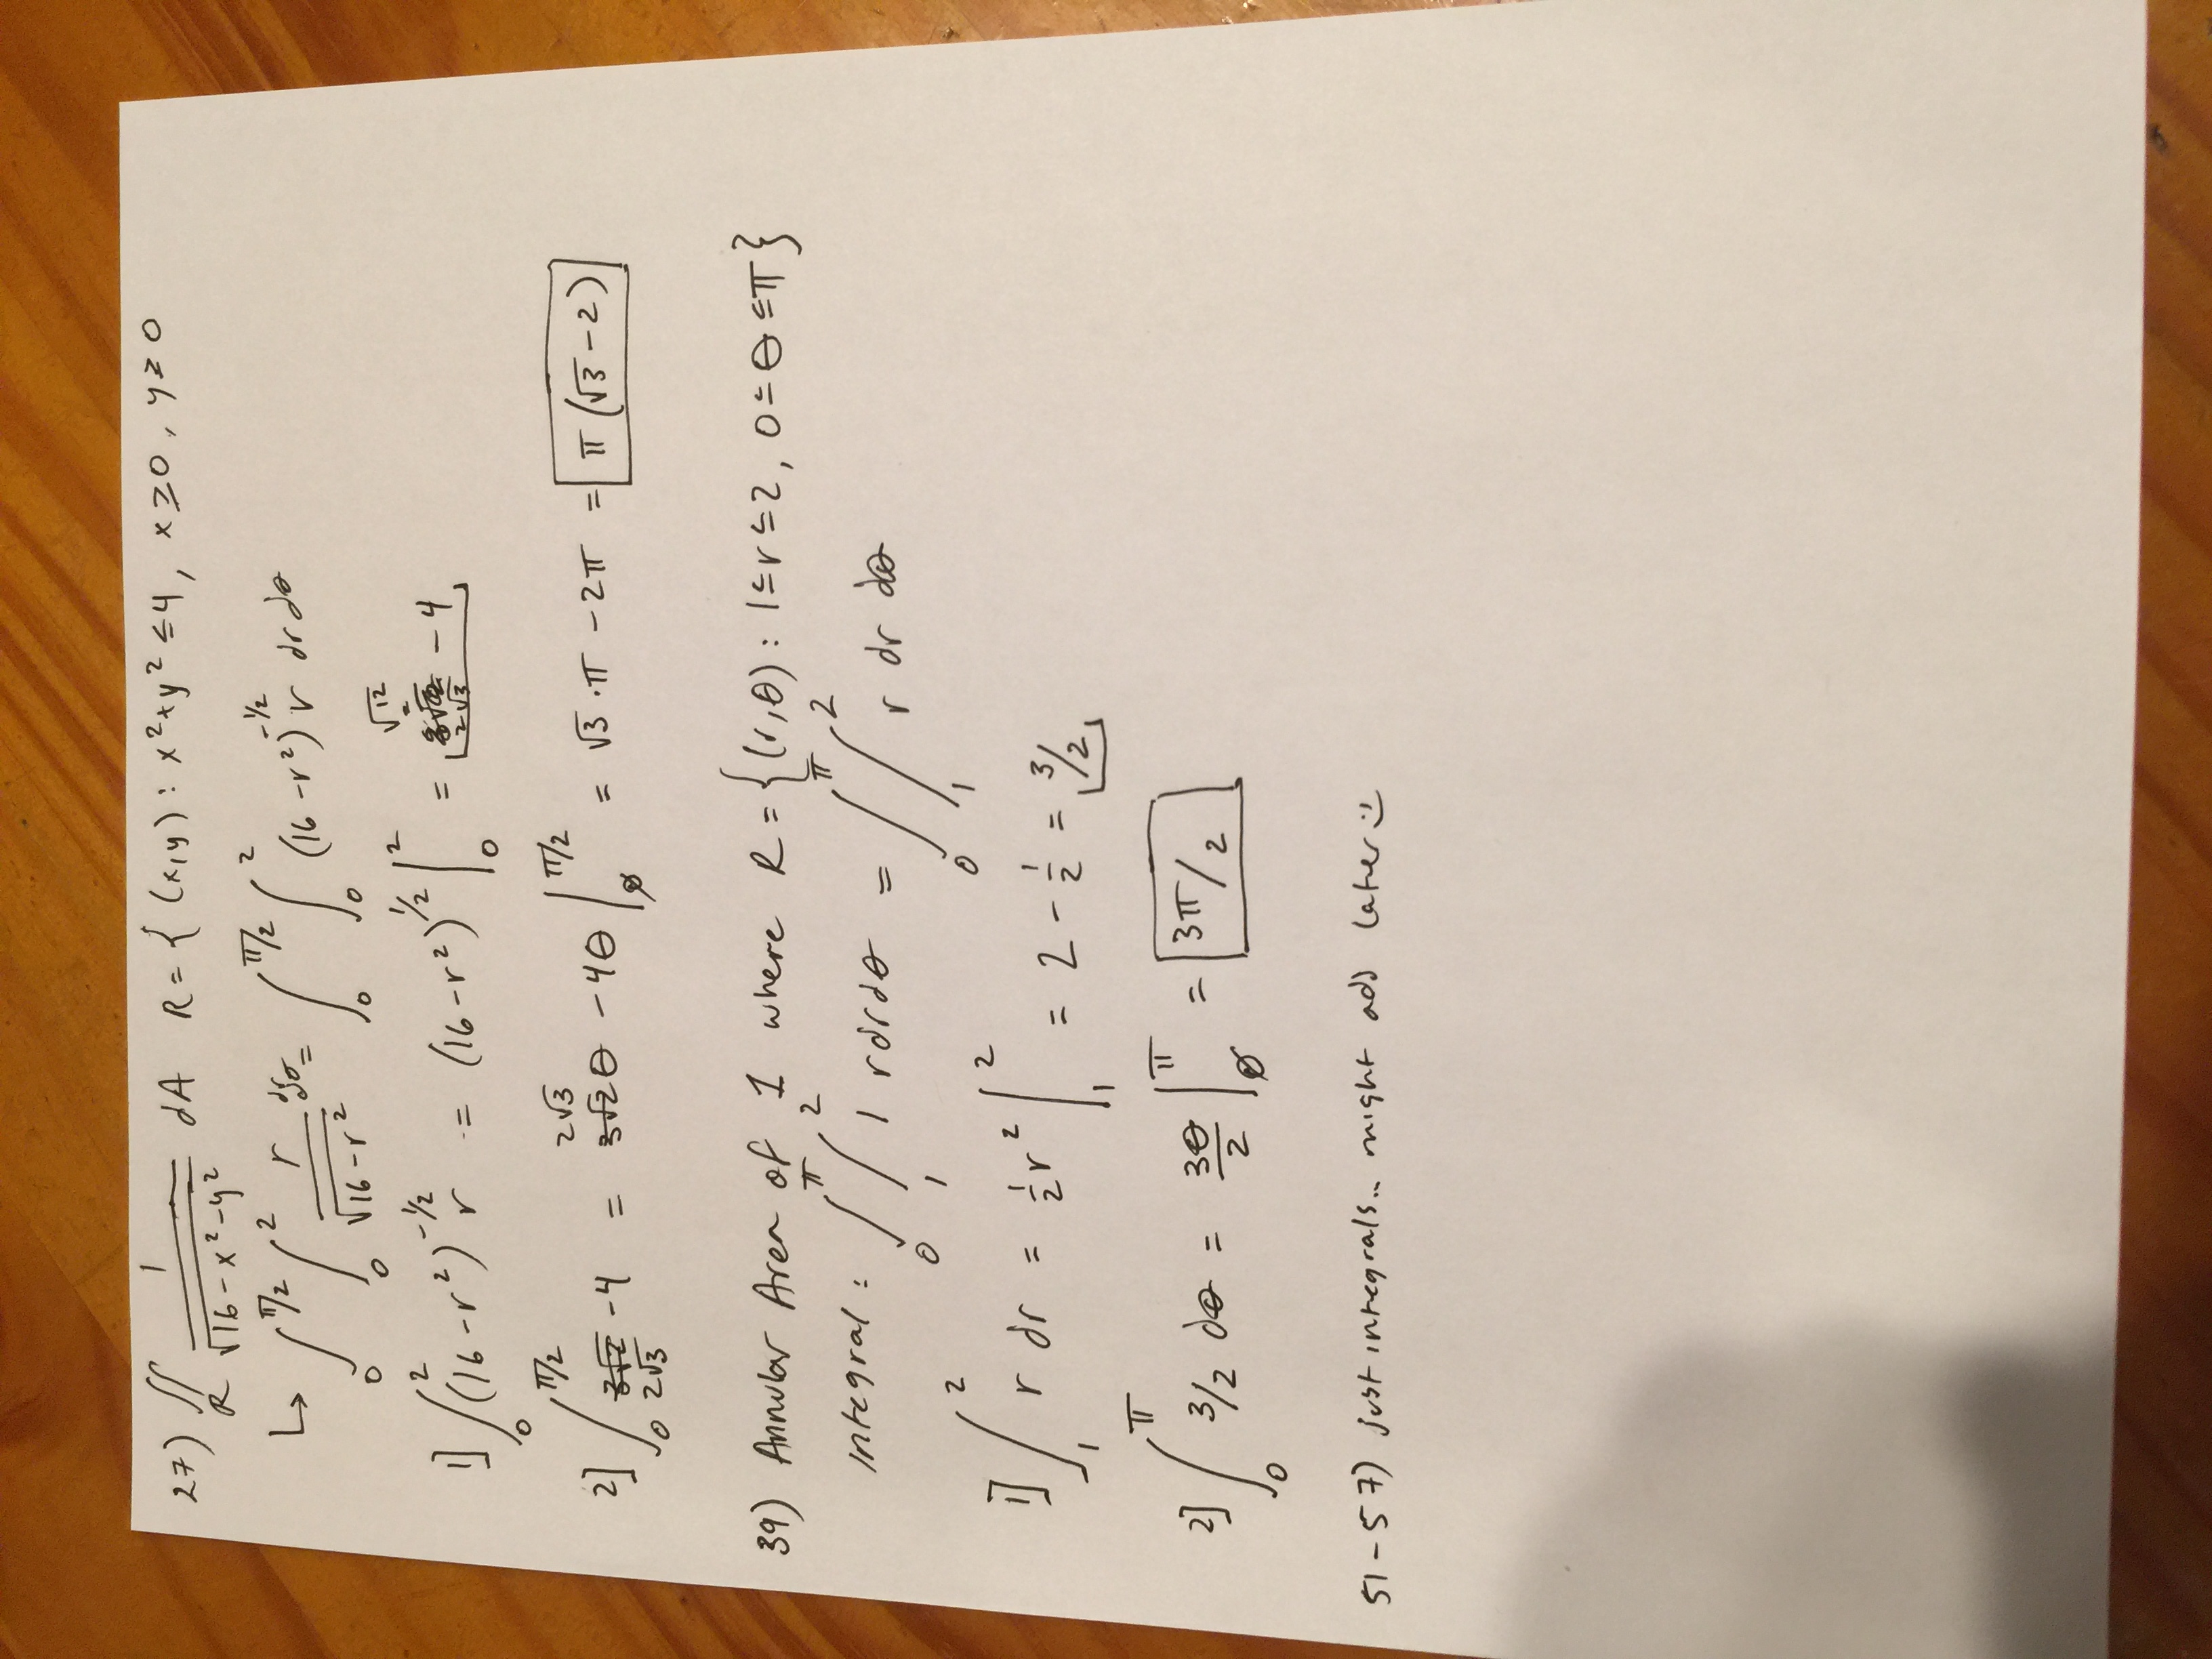 27) ∬_R 1/√(16-x²-y²) dA R = { (x,y) : x²+y² ≤ 4, x ≥ 0, y ≥ 0
↳ ∫₀^(π/2) ∫₀^2 r/√(16-r²) drdθ = ∫₀^(π/2) ∫₀^2 (16-r²)^(-1/2) r dr dθ
1] ∫₀^2 (16-r²)^(-1/2) r = (16-r²)^(1/2) |₀^2 = √12 = 2√3 - 4
2] ∫₀^(π/2) 3√2 2√3 - 4 = 2√3 3√2 θ - 4θ |₀^(π/2) = √3·π - 2π = π(√3-2)
39) Annular Area of 1 where R = {(r,θ) : 1≤r≤2, 0≤θ≤π}
integral : ∫₀^π ∫₁^2 1 r dr dθ = ∫₀^π ∫₁^2 r dr dθ
1] ∫₁^2 r dr = 1/2 r² |₁^2 = 2 - 1/2 = 3/2
2] ∫₀^π 3/2 dθ = 3θ/2 |₀^π = 3π/2
51-57) just integrals.. might add later :)